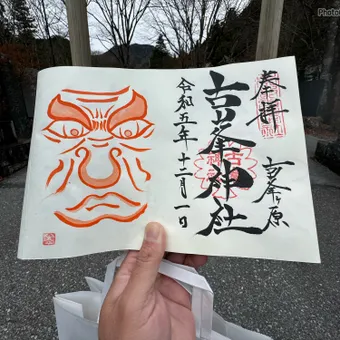 奉拝
古峯ヶ原
古峯神社
令和五年十二月一日